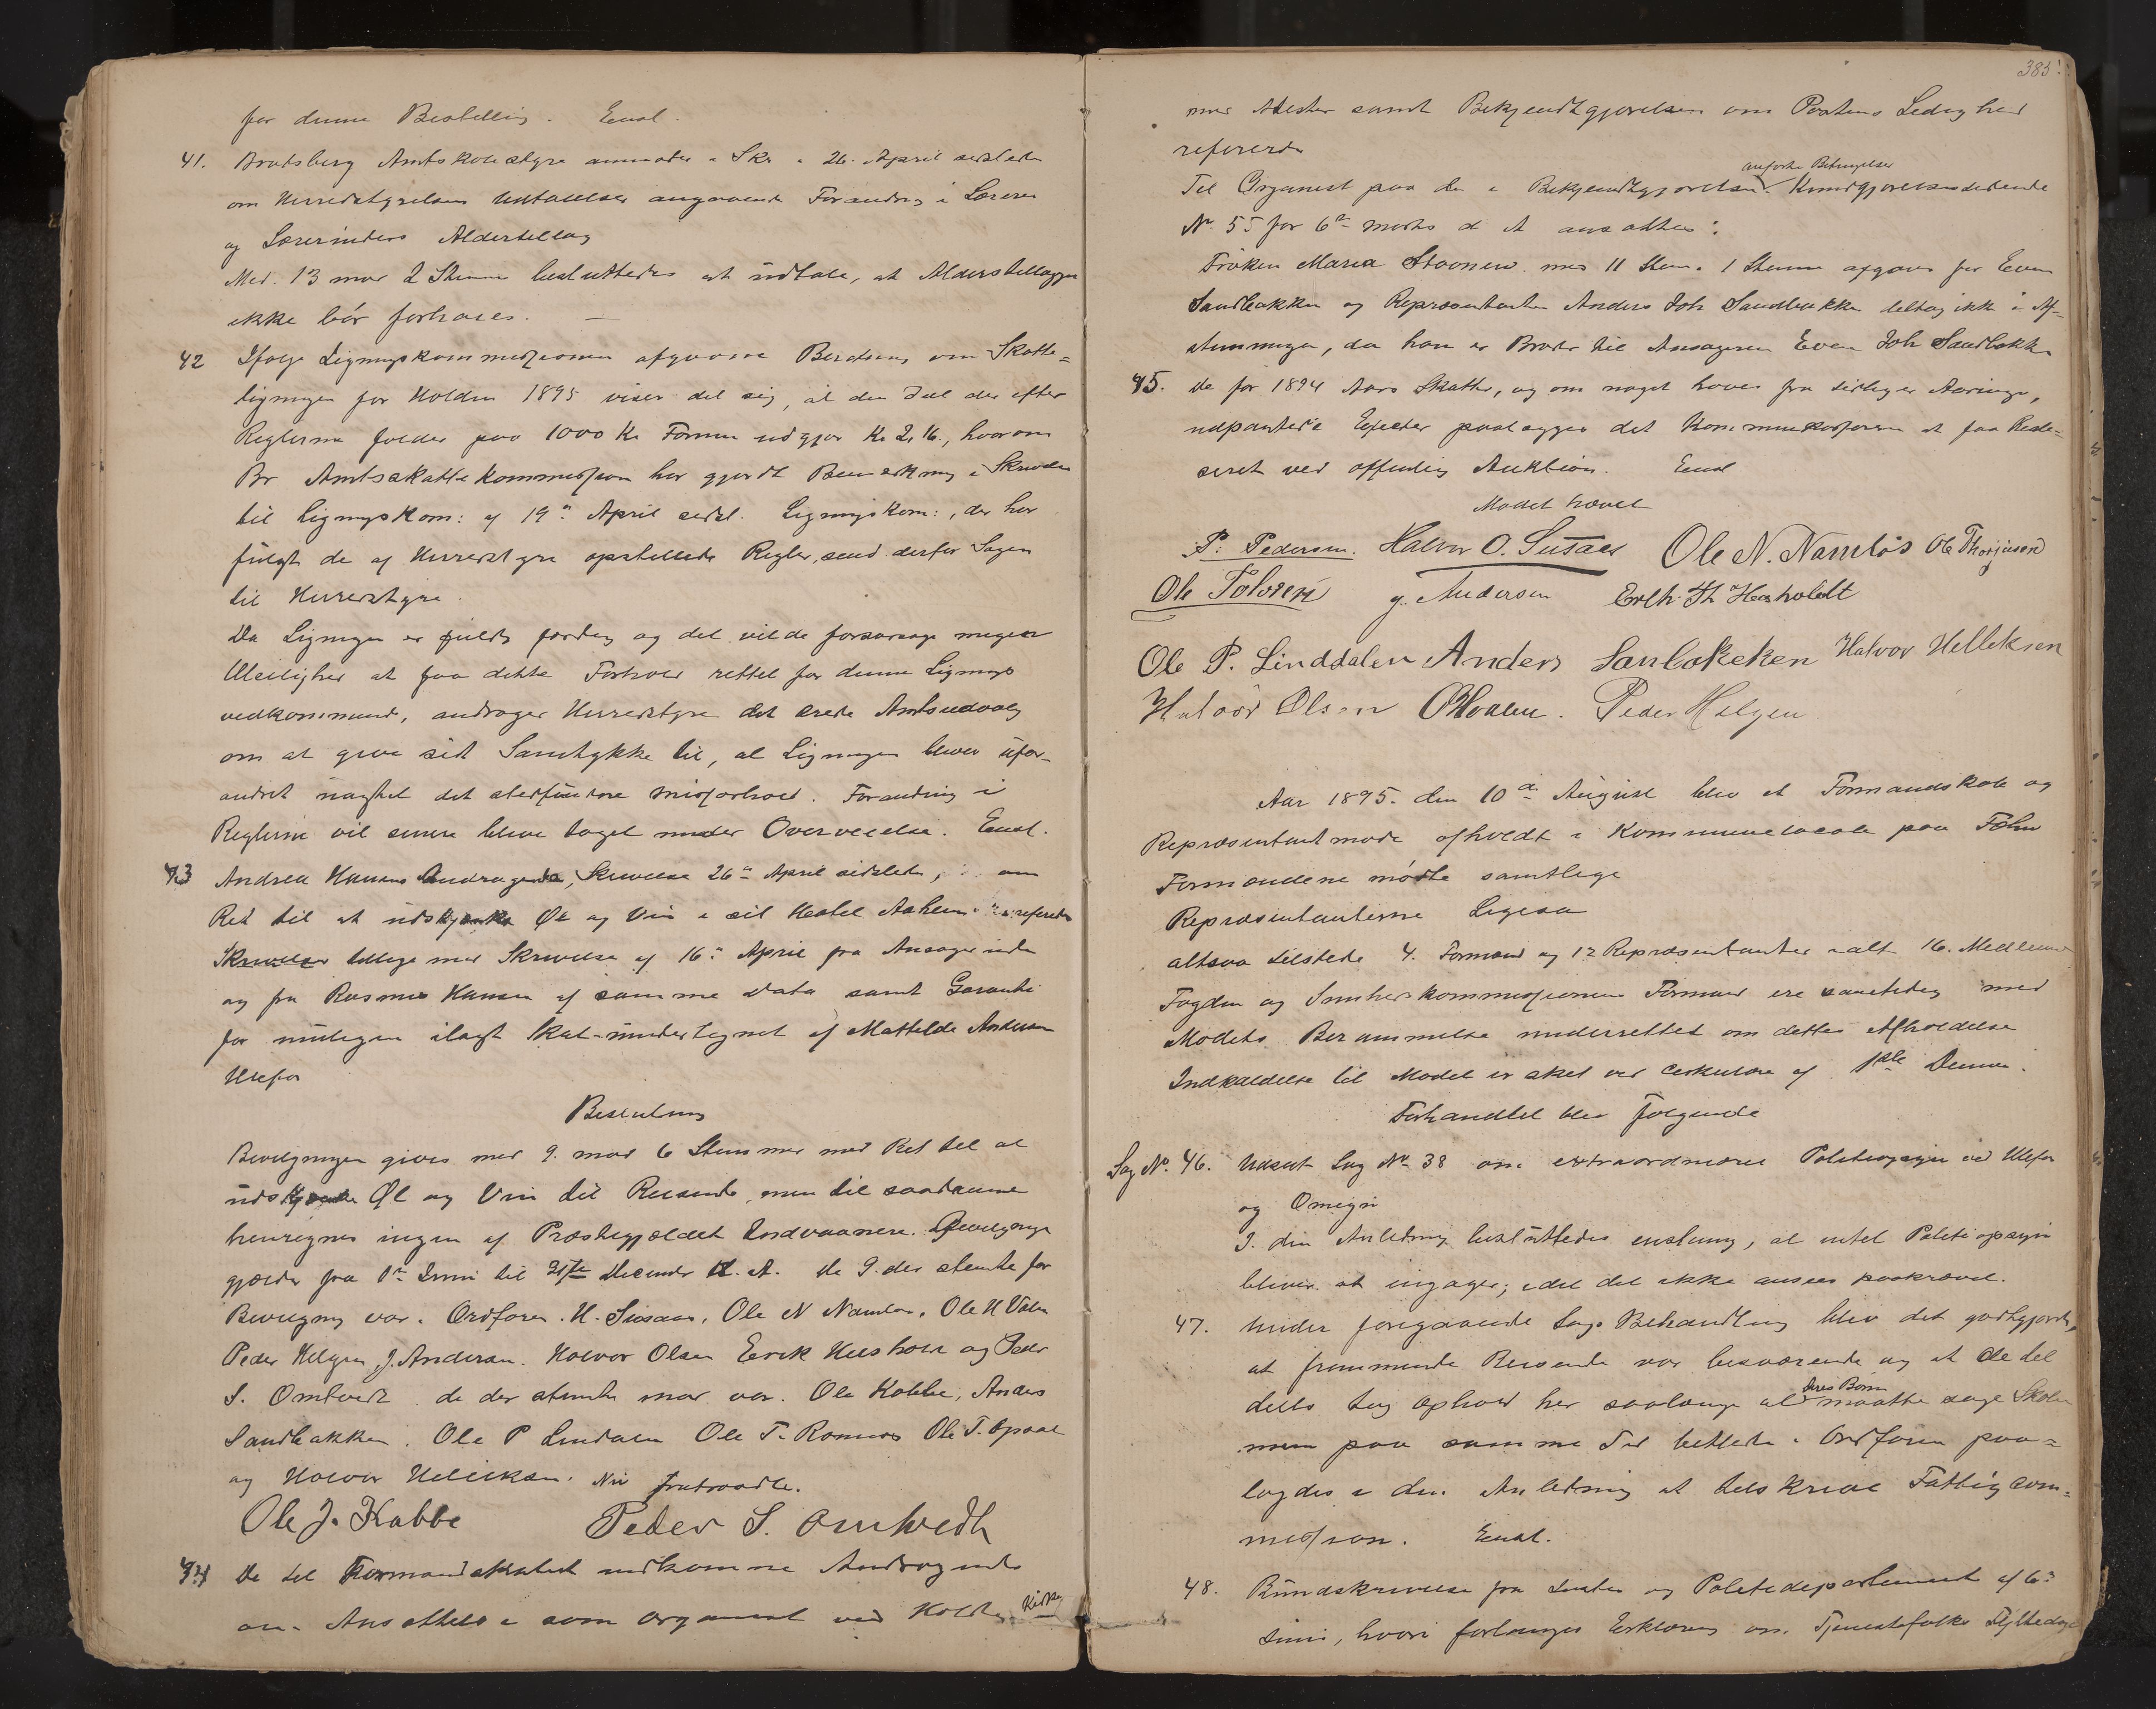 for denne Bestilling. Enst.
41. Bratsberg Amtsskolestyre anmoder i Skr. 26. April sidstleden
om Herredstyrelsens Udtalelse angaaende Forandring i Læreres
og Lærerinders Alderstillæg
Med 13 mod 2 Stemmer besluttedes at udtale, at Alderstillægget
ikke bör forhöies. —
42 Ifølge Ligningskommissionens afgivne Beretning om Skatte=
ligningen for Holden 1895 viser det sig, at den Del der efter
Reglerne falder paa 1000 Kr Formue udgjør Kr 2,16., hvorom
Br Amtsskattekommission har gjordt Bemærkning i Skrivelse
til Ligningskom: af 19de April sidstl. Ligningskom:, der har
fulgt de af Herredstyre opstillede Regler, send derfor Sagen
til Herredstyre.
Da Ligningen er fuldt færdig og det vilde foraarsage megen
Uleilighed at faa dette Forhold rettet for denne Lignings
vedkommende, andrager Herredstyre det ærede Amtsudvalg
om at give sit Samtykke til, at Ligningen bliver ufor-
andret uagtet det stedfundne Misforhold. Forandring i
Reglerne vil senere blive taget under Overveielse. Enst.
43 Andrea Hansens Andragende, Skrivelse 26de April sidstleden, om
Ret til at udskjænke Øl og Vin i sit Hotel Aaheim refereredes
Skrivelser tillige med Skrivelse af 16de April fra Ansøgerinden
og fra Rasmus Hansen af samme Dato samt Garanti
for muligens ilagt Skat undertegnet af Mathilde Andersen
Ulefos
Beslutning
Bevilgningen gives med 9 mod 6 Stemmer med Ret til at
udskjænke Øl og Vin til Reisende, men til saadanne
henregnes ingen af Præstegjældet Indvaanere. Bevilgningen
gjælder fra 1ste Juni til 31te December d. A. De 9 der stemte for
Bevilgning var: Ordføren. H. Susaas, Ole N Namløs, Ole H Valen
Peder Helgen, J. Andersen. Halvor Olsen Erik Hersholt og Peder
S. Omtvedt de der stemte mod var. Ole Kabbe, Anders
Sandbakken. Ole P Lindalen Ole T. Romnes Ole T. Opsal
og Halvor Helleksen. Nu fratraadte.
Ole J. Kabbe Peder S. Omtvedt
44 De til Formandskabet indkomne Andragende
om Ansættelse som Organist ved Holden Kirke

385
med Attester samt Bekjendtgjørelsen om Postens Ledighed
refereredes
anførte Betingelser
Til Organist paa de i Bekjendtgjørelsen Kundgjørelsestidende
No. 55 for 6te Marts d A ansattes:
Fröken Maria Stovner med 11 Stem. 1 Stemme afgaves for Even
Sandbakken og Repræsentanten Anders Joh Sandbakken deltog ikke i Af=
stemningen, da han er Broder til Ansøgeren Even Joh Sandbakken
45. De for 1894 Aars Skatter, og om noget haves fra tidligere Aaringer,
udpantede Effecter paalægges det Kommunekassereren at faa Reali=
seret ved offentlig Auktion. Enst
Mødet hævet
P. Pedersen. Halvor O. Susaas Ole N. Namløs Ole Thorjusen
Ole Tolvsen J. Andersen Erik Th Hersholdt
Ole P. Linddalen Anders Sanbakeken Halvor Helleksen
Halvor Olsen OHvalen. Peder Helgen

Aar 1895. den 10de August blev et Formandskabs og
Repræsentantmøde afholdt i Kommunelocale paa Fæhn
Formændene mødte samtlige
Repræsentanterne Ligesaa
altsaa tilstede 4. Formænd og 12 Repræsentanter ialt 16. Medlemmer
Fogden og Sundhedskommissionens Formand ere samtidig med
Mødets Berammelse underrettet om dettes Afholdelse
Indkaldelse til Mødet er sket ved Cirkulære af 1ste Dennes.
Forhandlet blev følgende
Sag No. 46. Udsat Sag No 38 om extraordinære Politiopsyn ved Ulefos
og Omegn
I den Anledning besluttedes enstemmig, at intet Politiopsyn
bliver at engagere; idet det ikke ansees paakrævet.
47. Under foregaaende Sags Behandling blev det godtgjordt,
at fremmende Reisende var besværende og at de til
deres Børn
dels tog Ophold her saalænge at maatte søge Skolen
men paa samme Tid betlede. Ordføren paa=
lagdes i den Anledning at tilskrive Fattigcom=
mission. Enst.
48. Rundskrivelse fra Justits og Politidepartementet af 6te
Juni, hvori forlanges Erklæring om Tjenestefolks Flyttedage